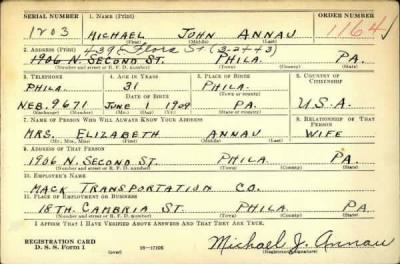 SERIAL NUMBER 1. NAME (Print) ORDER NUMBER
1203 MICHAEL JOHN ANNAU 1164
(First) (Middle) (Last)
2. ADDRESS (Print) 439 E Flora St (3-24-43)
1906 N. SECOND ST. PHILA. PA.
(Number and street or R. F. D. number) (Town) (County) (State)
3. TELEPHONE 4. AGE IN YEARS 5. PLACE OF BIRTH 6. COUNTRY OF CITIZENSHIP
PHILA. 31 PHILA.
DATE OF BIRTH (Town or county)
NEB. 9671 JUNE 1 1909 PA. U.S.A.
(Exchange) (Number) (Mo.) (Day) (Yr.) (State or country)
7. NAME OF PERSON WHO WILL ALWAYS KNOW YOUR ADDRESS 8. RELATIONSHIP OF THAT PERSON
MRS. ELIZABETH ANNAU WIFE
(Mr., Mrs., Miss) (First) (Middle) (Last)
9. ADDRESS OF THAT PERSON
1906 N. SECOND ST. PHILA. PA.
(Number and street or R. F. D. number) (Town) (County) (State)
10. EMPLOYER'S NAME
MACK TRANSPORTATION CO.
11. PLACE OF EMPLOYMENT OR BUSINESS
18TH. CAMBRIA ST. PHILA PA.
(Number and street or R. F. D. number) (Town) (County) (State)
I AFFIRM THAT I HAVE VERIFIED ABOVE ANSWERS AND THAT THEY ARE TRUE.
REGISTRATION CARD
D. S. S. Form 1 (over) 16—17105 Michael J. Annau
(Registrant's signature)